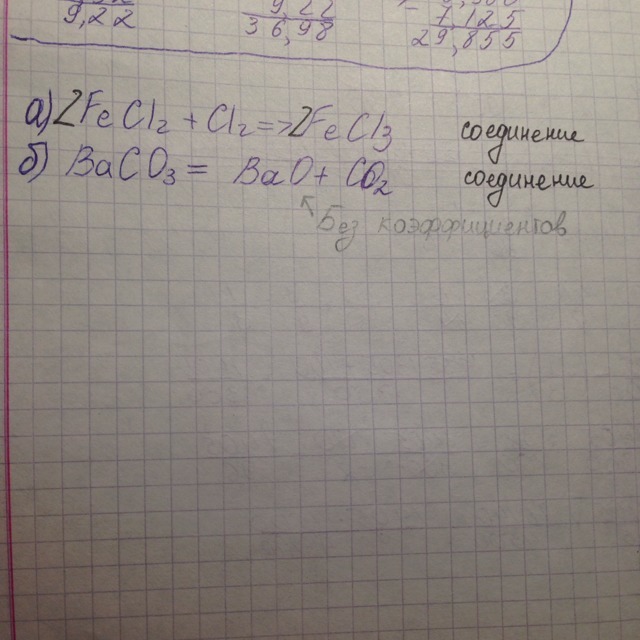 9,22 36,98 7125
29,855
а) 2FeCl2 + Cl2 => 2FeCl3 соединение
б) BaCO3 = BaO + CO2 соединение
Без коэффициентов